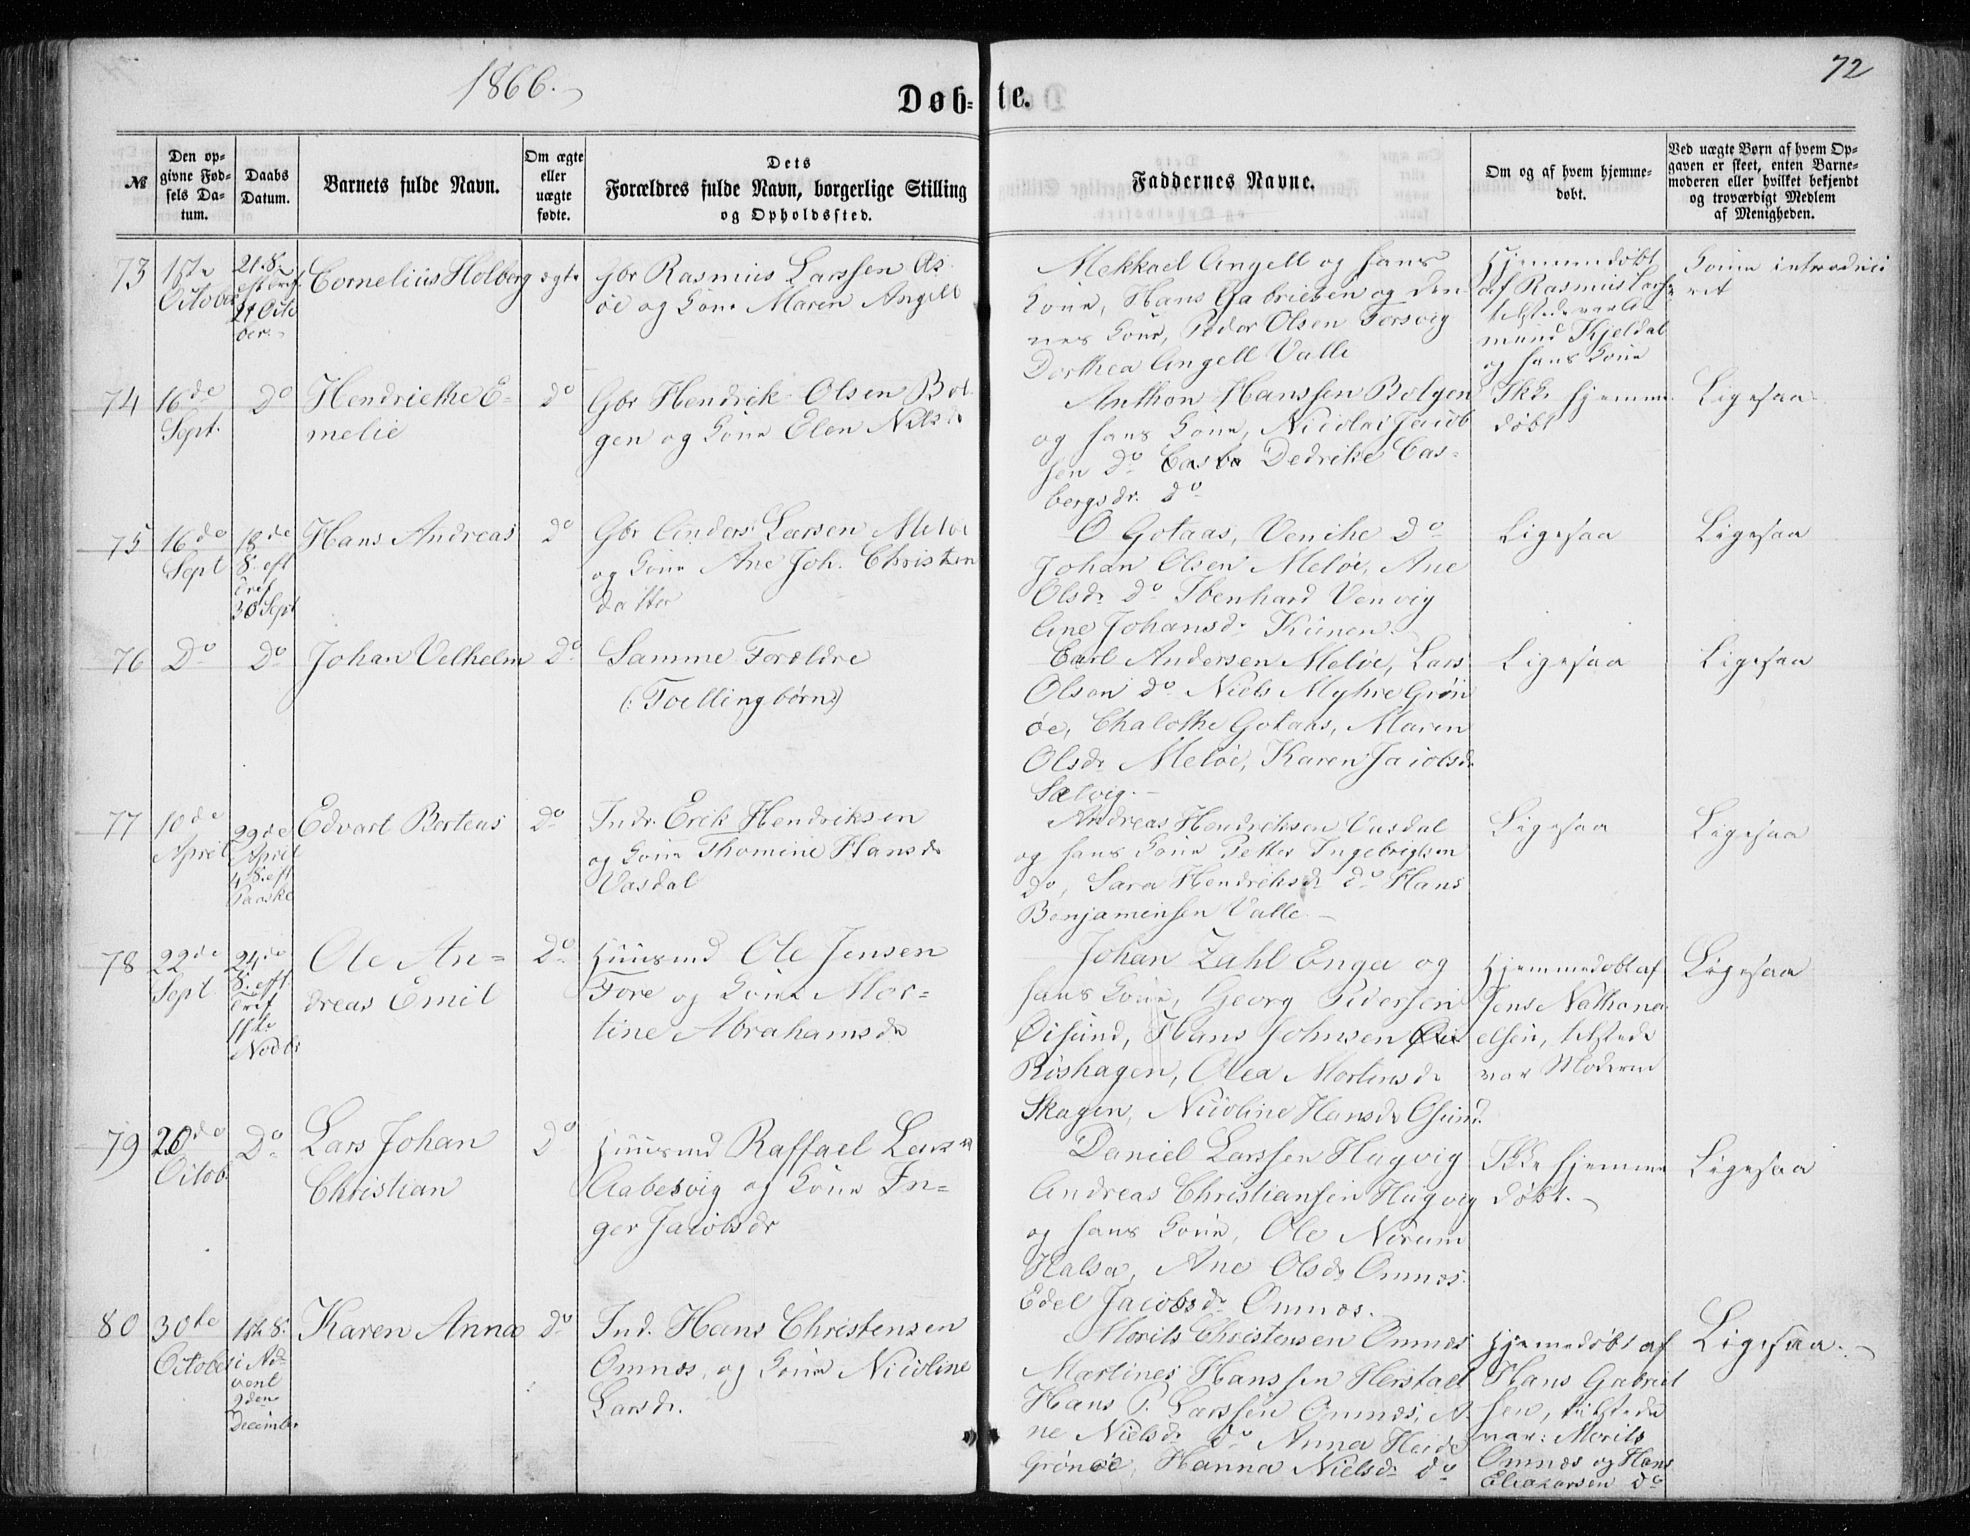 1866.
72
Døb-
te.
№
Den op-
givne Fød-
sels Da-
tum.
Daabs
Datum.
Barnets fulde Navn.
Om ægte
eller
uægte
fødte.
Dets
Forældres fulde Navn, borgerlige Stilling
og Opholdssted.
Faddernes Navne.
Om og af hvem hjemme-
døbt.
Ved uægte Børn af hvem Op-
gaven er skeet, enten Barne-
moderen eller hvilket bekjendt
og troværdigt Medlem
af Menigheden.
73
October
21 S.
21 Octo
ber.
Cornelius Holberg
ægte
Gbr Rasmus Larssen As
öe og Kone Maren Angell
Mekkael Angell og hans
Kone, Hans Gabrielsen og den-
nes Kone, Peder Olsen Forsvig
Dorthea Angell Valle
Hjemmedöbt
af Rasmus
mund Kjeldal
og hans Kone
Konen introduce
ret
74
16de
Sept.
Do
Hendriethe E-
melie
Do
Gbr Hendrik Olsen Bol
gen og Kone Elen Nilsd.
Anthon Hanssen Bolgen
og hans Kone, Nicolai Jacob
sen Do Dedrike Cas-
bergsdr. Do
Ikke hjemme
döbt
Ligesaa
75
16de
Sept
18de
S. eft
Tref
30 Sept
Hans Andreas
Do
Gbr Anders Larsen Melöe
og Kone Ane Joh. Christen
datter
O Gotaas, Venike Do
Johan Olsen Melöe, Ane
Olsdr Do Ibenhard Venvig
Ane Johansdr Kunen.
Ligesaa
Ligesaa
76
Do
Do
Johan Velhelm
Do
Samme Forældre
(: Toellingbörn :)
Carl Andersen Melöe, Lars
Olsen Do Niels Myhre Grön
öe, Chalothe Gotaas, Maren
Olsdr Melöe, Karen Jacobsdr
Selvig.
Ligesaa
Ligesaa
77
10de
April
22de
April
4 S. eft
Paaske
Edvart Berteus
Do
Indr. Erik Hendriksen
og Kone Thomine Hansdr
Vasdal
Andreas Hendriksen Vasdal
og hans Kone Petter Ingebrigtsen
Do, Sara Hendriksdr Do Hans
Benjaminsen Valle.
Ligesaa
Ligesaa
78
22de
Sept
24de
S. eft
Tref
11te
Novbr
Ole An-
dreas Emil
Do
Huusmd Ole Jensen
Fore og Kone Mor-
tine Abrahamsdr
Johan Zahl Enga og
hans Kone, Georg Pedersen
Öisund, Hans Johnsen
Rishagen, Olea Mortensdr
Skagen, Nicoline Hansdr Osund.
Hjemmedöbt af
Jens Nathana
elsen, tilstede
var Moderen
Ligesaa
79
20de
Octob
Do
Lars Johan
Christian
Do
Huusmd Raffael Larsn
Aabelsvig og Kone In-
ger Jacobsdr
Daniel Larssen Hugvig
Andreas Christiansen Hugvig
og hans Kone, Ole Norum
Halsa, Ane Olsdr Omnæs
Edel Jacobsdr Omnæs.
Ikke hjemme
döbt.
Ligesaa
80
30te
October
1ste S.
i Ad-
vent
December
Karen Anna
Do
Ind. Hans Christensen
Omnæs, og Kone Nicoline
Larsdr.
Morits Christensen Omnæs
Martines Hanssen Herstad
Hans P. Larssen Omnæs, A-
ne Nielsdr Do Anna Heide
Grönöe, Hanna Nielsdr Do
Hjemmedöbt af
Hans Gabriel
sen, tilstede
var: Morits
Omnæs og Hans
Eleazarsen Do
Ligesaa.